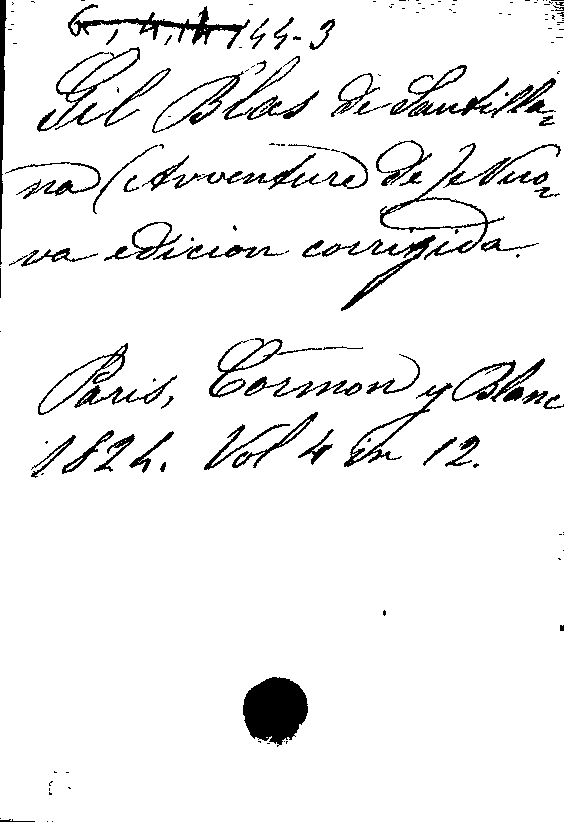 144-3
Gil Blas de Santilla=
na (Avventure de) Nuo=
va edicion corrigida.
Paris, Cormon y Blanc
1824. Vol 4 in 12.